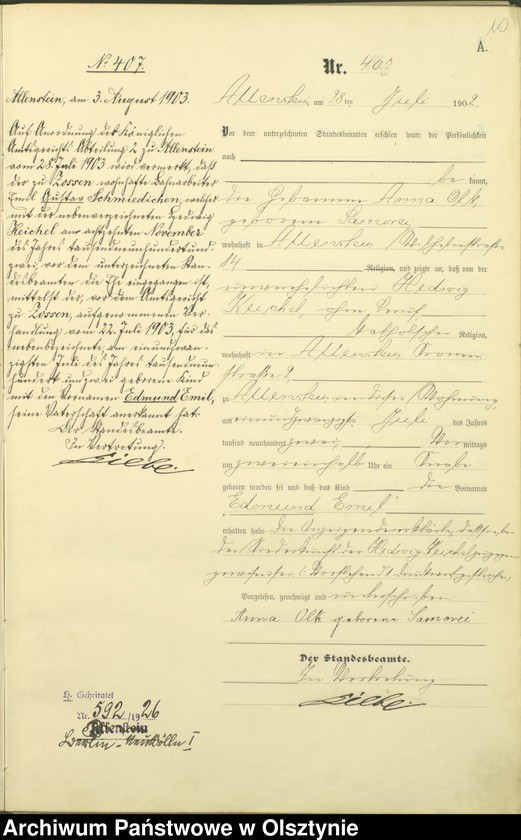 10
A.
No 407.
Allenstein, am 3. August 1903.
Auf Anordnung des Königlichen
Amtsgerichts Abteilung 2 zu Allenstein
vom 28. Juli 1903 wird vermerkt, daß
der zu Zossen wohnhafte Bahnarbeiter
Emil Gustav Schmiedichen, welcher
mit der nebenverzeichneten Hedwig
Reichel am achtzehnten November
des Jahres tausendneunhundertund-
zwei, vor dem unterzeichneten Stan-
desbeamten die Ehe eingegangen ist,
mittelst der, vor dem Amtsgericht
zu Zossen, aufgenommenen Ver-
handlung vom 22. Juli 1903, für das
nebenbezeichnete, am einundzwan-
zigsten Juli des Jahres tausendneun-
hundert und zwei geborene Kind
mit den Vornamen Edmund Emil,
seine Vaterschaft anerkannt hat.
Der Standesbeamte.
In Vertretung.
H. Geheiratet
Nr. 592/1926
Allenstein
Berlin-Neukölln I
Nr. 407
Allenstein, am 28ten Juli 1902.
Vor dem unterzeichneten Standesbeamten erschien heute der Persönlichkeit
nach
be kannt,
die Hebamme Anna Olk
geborene Samorei
wohnhaft in Allenstein, Wilhelmstraße
14 Religion, und zeigte an, daß von der
unverehelichten Hedwig
Reichel, ohne Beruf
katholischer Religion,
wohnhaft in Allenstein
straße 2,
zu Allenstein in dieser Wohnung,
am einundzwanzigsten Juli des Jahres
tausend neunhundert zwei, Vor mittags
um zweieinhalb Uhr ein Knabe
geboren worden sei und daß das Kind die Vornamen
Edmund Emil
erhalten habe. Die Anzeigende erklärte, daß sie bei
der Niederkunft der Hedwig Reichel zugegen
gewesen sei. Vorstehend
Vorgelesen, genehmigt und unterschrieben
Anna Olk geborene Samorei
Der Standesbeamte.
In Vertretung
Archiwum Państwowe w Olsztynie